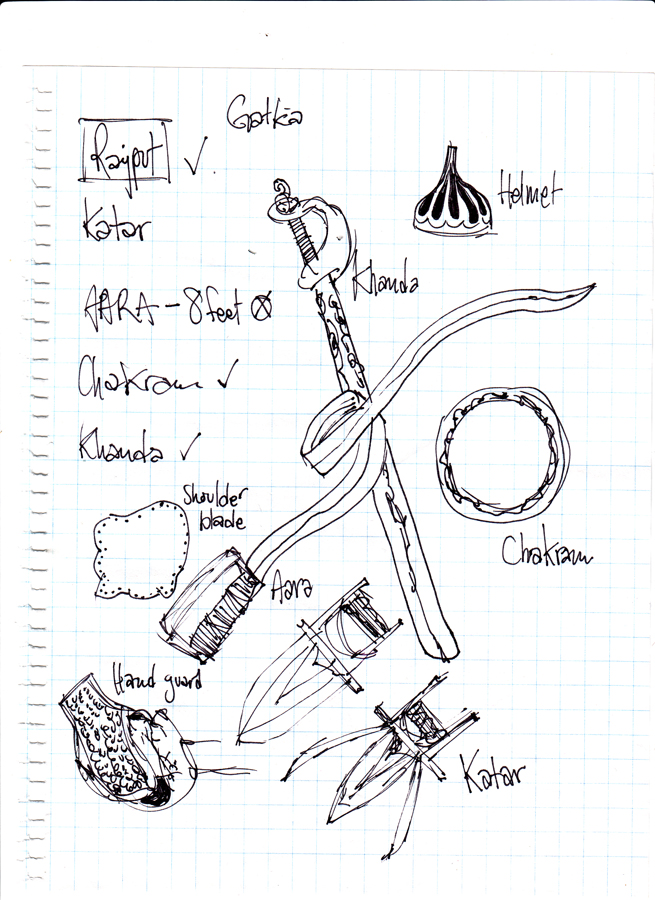 Gatka
Rajput ✓
Katar
AARA - 8 feet ⊗
Chakram ✓
Khanda ✓
Helmet
Khanda
Chakram
Shoulder
blade
Aara
Hand guard
Katar